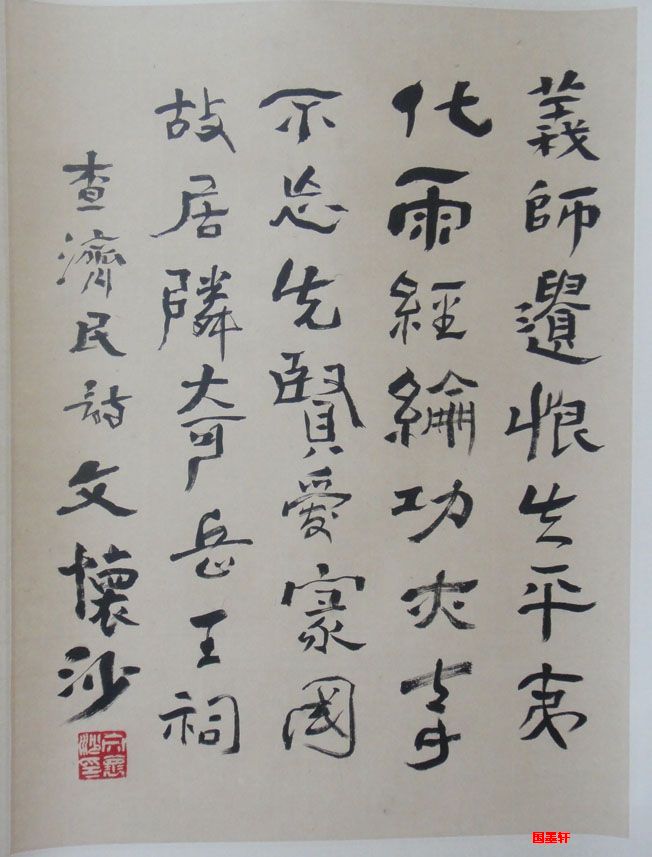 義師遺恨失平夷
化雨經綸功亦奇
不忘先賢愛家國
故居隣奇岳王祠
查濟民詩 文懷沙
文懷沙印
国墨轩